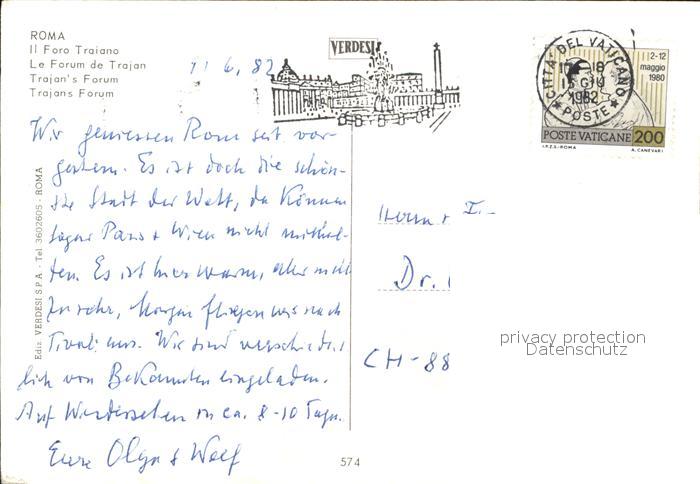 ROMA
Il Foro Traiano
Le Forum de Trajan
Trajan's Forum
Trajans Forum
11 6. 82
VERDESI
CITTÀ DEL VATICANO
17-18
15 GIU
1982
POSTE
2-12
maggio
1980
POSTE VATICANE 200
I.P.Z.S.-ROMA A. CANEVARI
Wir geniessen Rom seit vor-
gestern. Es ist doch die schön-
ste Stadt der Welt, da können
sogar Paris + Wien nicht mithal-
ten. Es ist hier warm, aber nicht
zu sehr, Morgen fliegen wir nach
Tivoli aus. Wir sind verschiedent-
lich von Bekannten eingeladen.
Auf Wiedersehen in ca. 8-10 Tagen.
Eure Olga & Wolf
Ediz. VERDESI S.P.A. - Tel 3602605 - ROMA
574
Herrn + 
Dr.
CH-88
privacy protection
Datenschutz